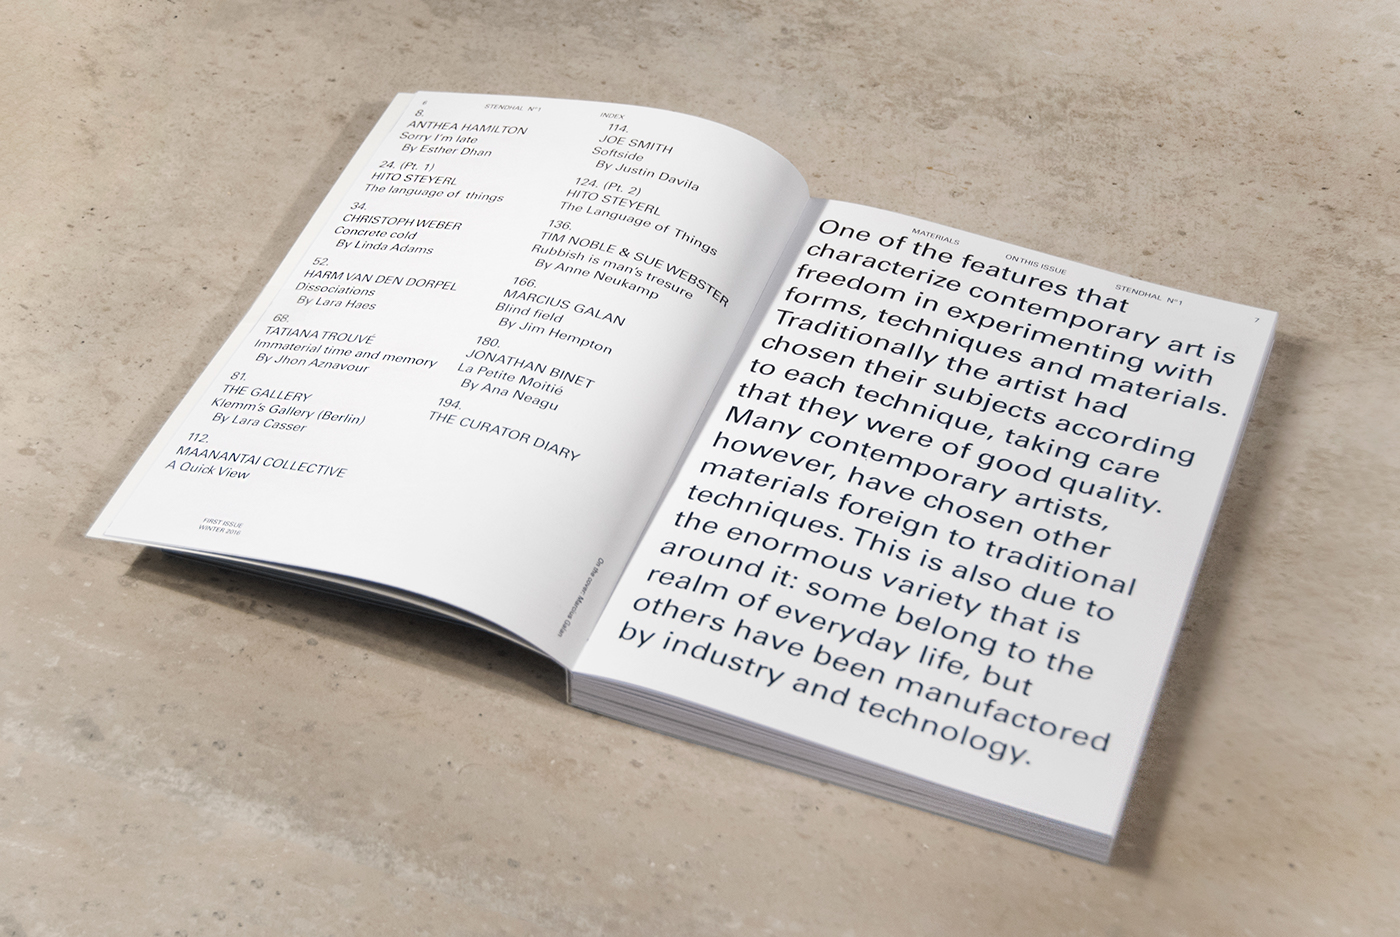 6
STENDHAL N°1
INDEX
8.
ANTHEA HAMILTON
Sorry I'm late
By Esther Dhan
24. (Pt. 1)
HITO STEYERL
The language of things
34.
CHRISTOPH WEBER
Concrete cold
By Linda Adams
52.
HARM VAN DEN DORPEL
Dissociations
By Lara Haes
68.
TATIANA TROUVÉ
Immaterial time and memory
By Jhon Aznavour
81.
THE GALLERY
Klemm's Gallery (Berlin)
By Lara Casser
112.
MAANANTAI COLLECTIVE
A Quick View
114.
JOE SMITH
Softside
By Justin Davila
124. (Pt. 2)
HITO STEYERL
The Language of Things
136.
TIM NOBLE & SUE WEBSTER
Rubbish is man's tresure
By Anne Neukamp
166.
MARCIUS GALAN
Blind field
By Jim Hempton
180.
JONATHAN BINET
La Petite Moitié
By Ana Neagu
194.
THE CURATOR DIARY
FIRST ISSUE
WINTER 2016
On the cover: Marcius Galan
MATERIALS
ON THIS ISSUE
STENDHAL N°1
7
One of the features that
characterize contemporary art is
freedom in experimenting with
forms, techniques and materials.
Traditionally the artist had
chosen their subjects according
to each technique, taking care
that they were of good quality.
Many contemporary artists,
however, have chosen other
materials foreign to traditional
techniques. This is also due to
the enormous variety that is
around it: some belong to the
realm of everyday life, but
others have been manufactored
by industry and technology.